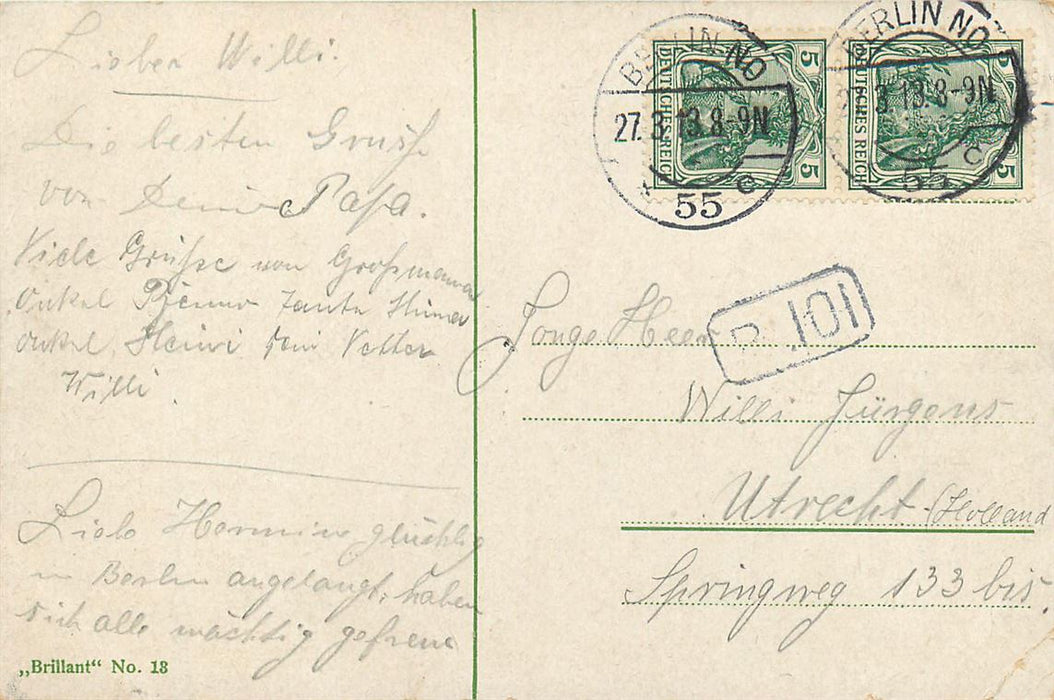 Lieber Willi.
Die besten Grüsse
von Deinem Papa.
Viele Grüsse von Grossmama
Onkel Tante Mina
Onkel Heini Dein Vetter
Willi.
Liebe Hermine glücklig
in Berlin angelangt, haben
sich alle mächtig gefreut
„Brillant“ No. 13
BERLIN NO
27.3.13.8-9N
* 55 c
BERLIN NO
3.13.8-9N
55 c
5 DEUTSCHES REICH 5
5 DEUTSCHES REICH 5
R. 101
Jonge Heer
Willi Jürgens
Utrecht (Holland
Springweg 133 bis.